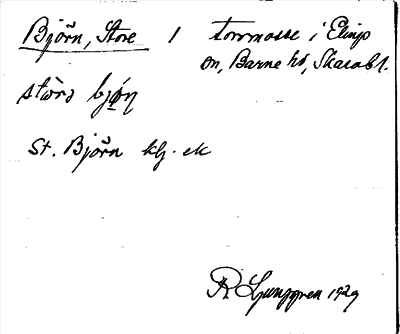 Björn, Store 1 torvmosse i Elings
sn, Barne hd, Skarabl.
stòrə bjǫ́ɳ
St. Björn kлj. ek
R. Ljunggren 1929